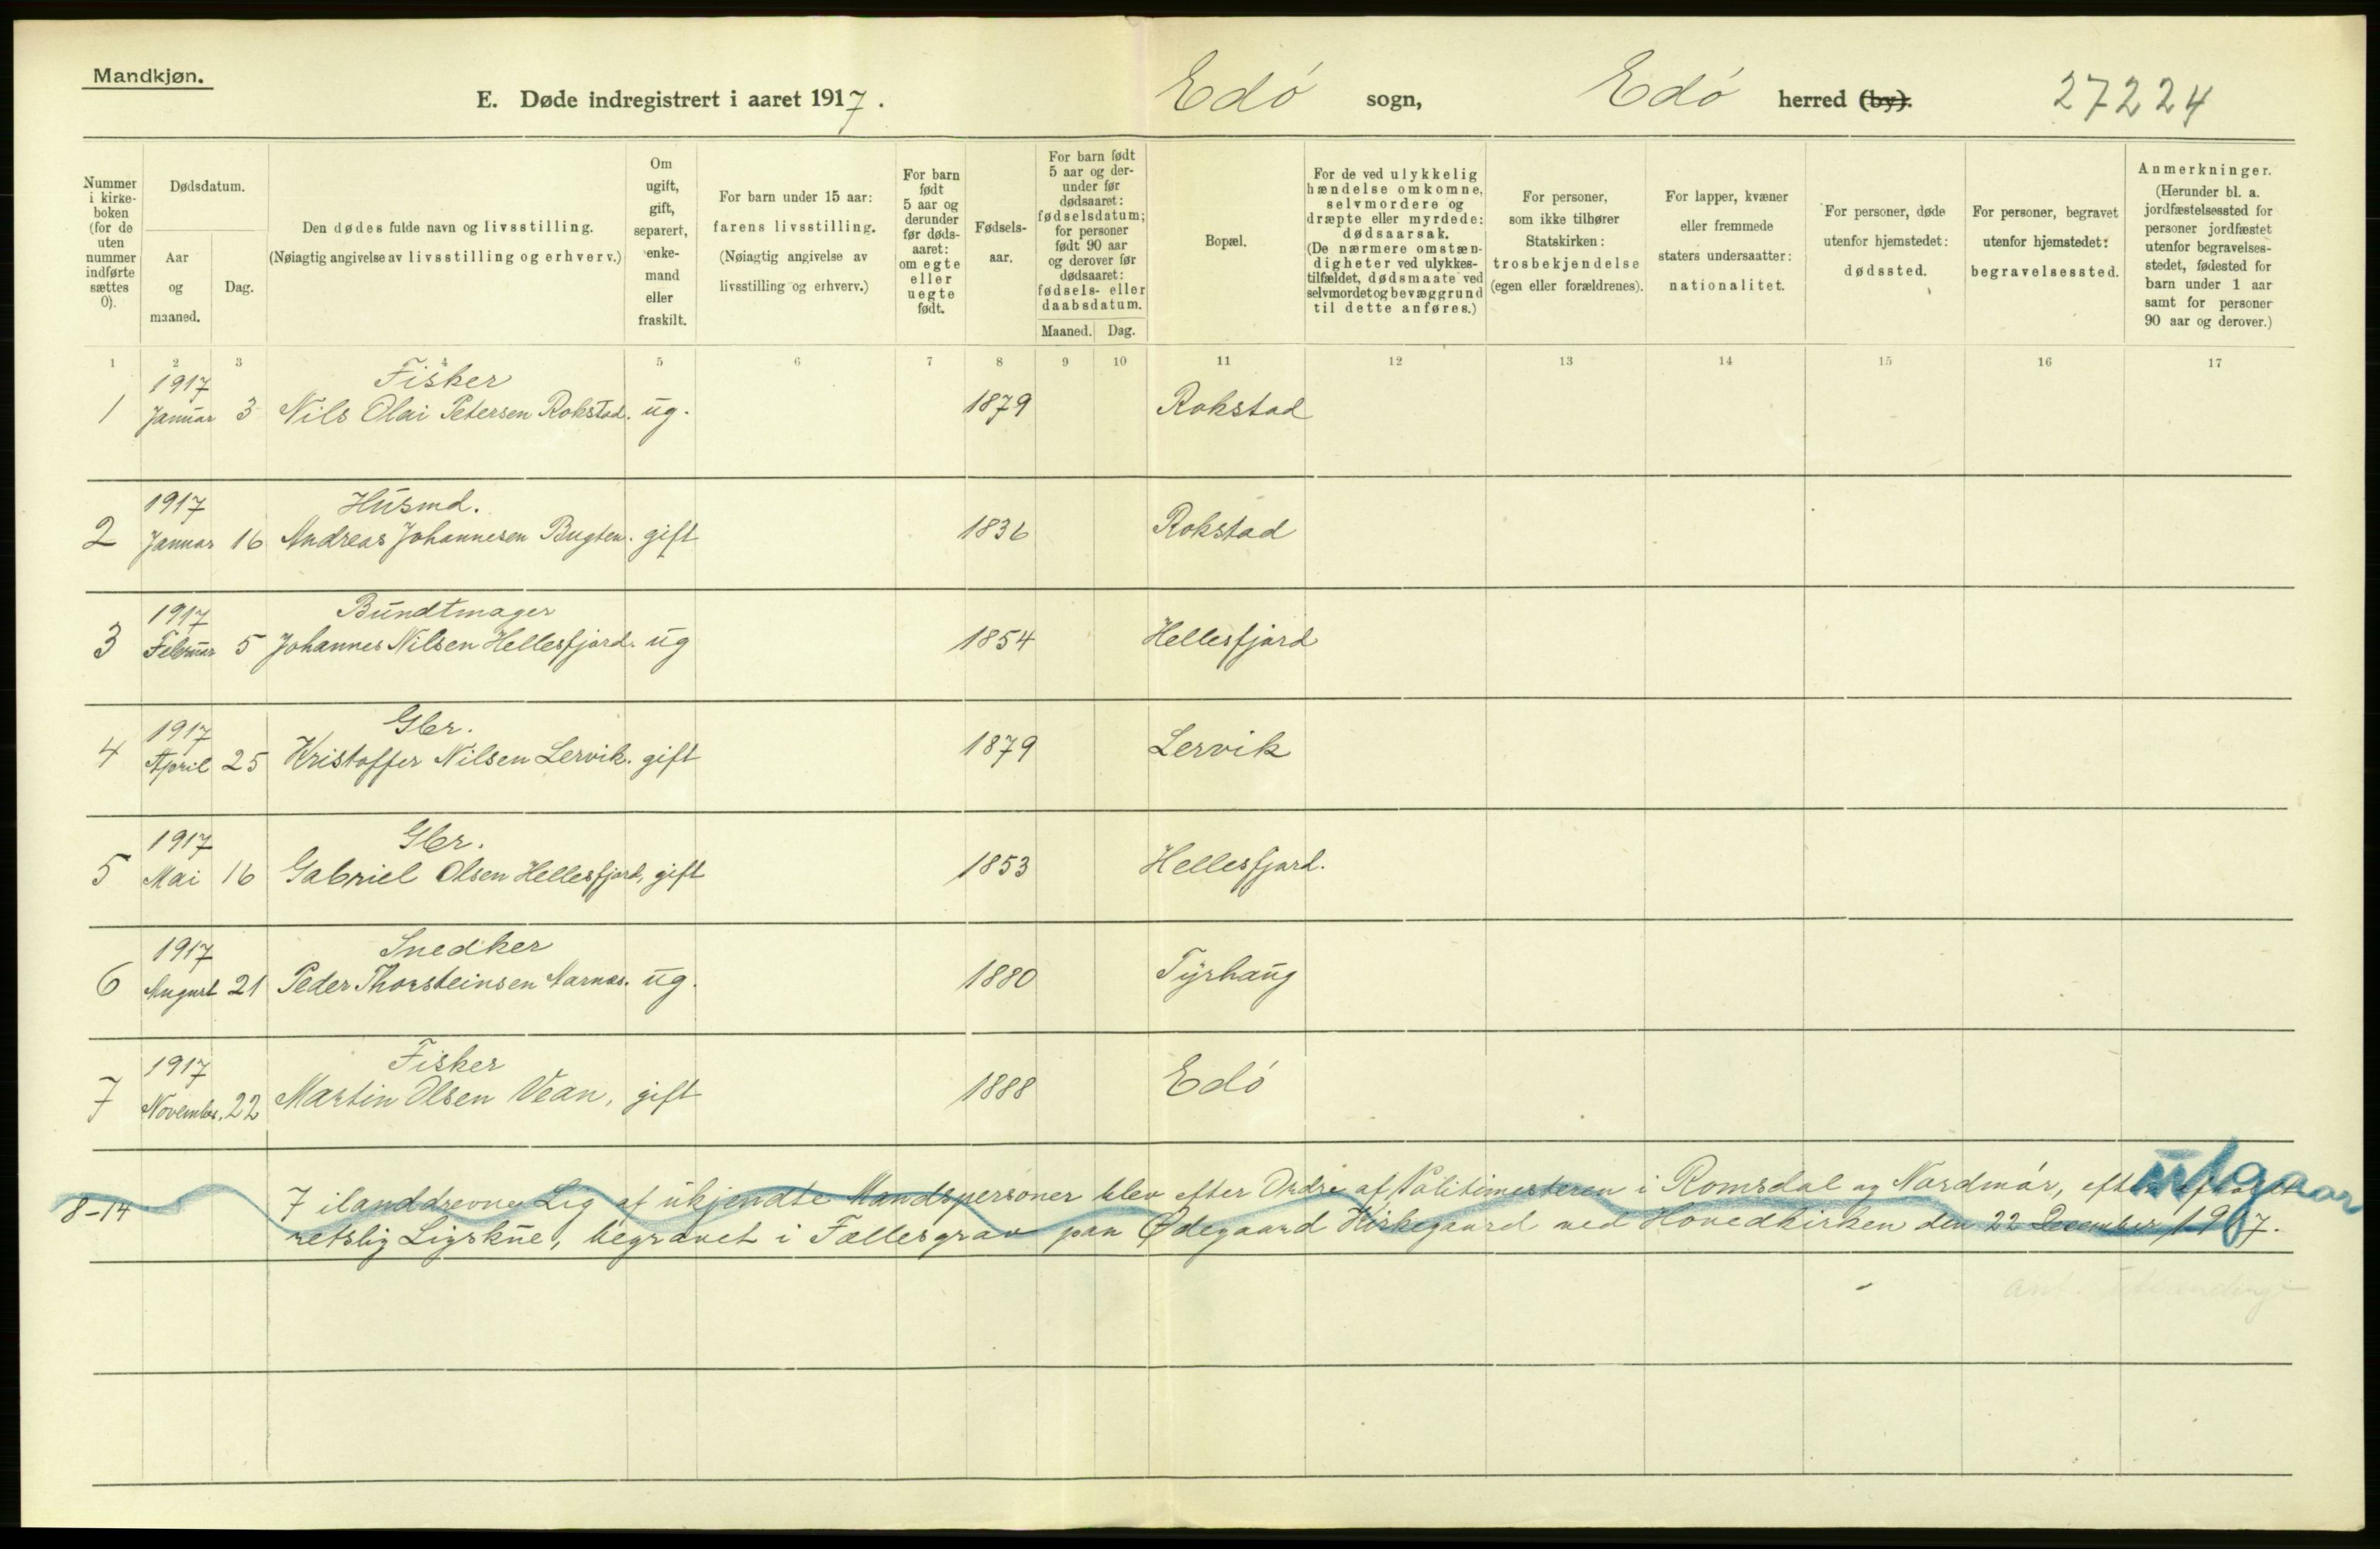 Mandkjøn.
E. Døde indregistrert i aaret 1917. Edø sogn, Edø herred (by). 27224
Nummer i kirkeboken (for de uten nummer indførte sættes 0).
Dødsdatum.
Aar og maaned.
Dag.
Den dødes fulde navn og livsstilling.
(Nøiagtig angivelse av livsstilling og erhverv.)
Om ugift, gift, separert, enkemand eller fraskilt.
For barn under 15 aar:
farens livsstilling.
(Nøiagtig angivelse av
livsstilling og erhverv.)
For barn født 5 aar og derunder før dødsaaret: om egte eller uegte født.
Fødselsaar.
For barn født 5 aar og derunder før dødsaaret: fødselsdatum; for personer født 90 aar og derover før dødsaaret: fødsels- eller daabsdatum.
Maaned. Dag.
Bopæl.
For de ved ulykkelig hændelse omkomne, selvmordere og dræpte eller myrdede: dødsaarsak. (De nærmere omstændigheter ved ulykkestilfældet, dødsmaate ved selvmordet og bevæggrund til dette anføres.)
For personer, som ikke tilhører Statskirken: trosbekjendelse (egen eller forældrenes).
For lapper, kvæner eller fremmede staters undersaatter: nationalitet.
For personer, døde utenfor hjemstedet: dødssted.
For personer, begravet utenfor hjemstedet: begravelsessted.
Anmerkninger.
(Herunder bl. a. jordfæstelsessted for personer jordfæstet utenfor begravelsesstedet, fødested for barn under 1 aar samt for personer 90 aar og derover.)
1 2 3 4 5 6 7 8 9 10 11 12 13 14 15 16 17
1917 Fisker
1 Januar 3 Nils Olai Petersen Rokstad. ug. 1879 Rokstad
1917 Husmd.
2 Januar 16 Andreas Johannesen Bugten. gift 1836 Rokstad
1917 Bundtmager
3 Februar 5 Johannes Nilsen Hellesfjord. ug 1854 Hellesfjord
1917 Gbr.
4 April 25 Kristoffer Nilsen Lervik. gift 1879 Lervik
1917 Gbr.
5 Mai 16 Gabriel Olsen Hellesfjord, gift 1853 Hellesfjord.
1917 Snedker
6 August 21 Peder Thorsteinsen Aarnes. ug. 1880 Tyrhaug
1917 Fisker
7 November. 22 Martin Olsen Vean, gift 1888 Edø
8-14 7 ilanddrevne Lig af ukjendte Mandspersoner blev efter Ordre af Politimesteren i Romsdal og Nordmør, efter utgaar
retslig Ligskue, begravet i Fællesgrav paa Ødegaard Kirkegaard ved Hovedkirken den 22 December 1917.
ant. utlændinge